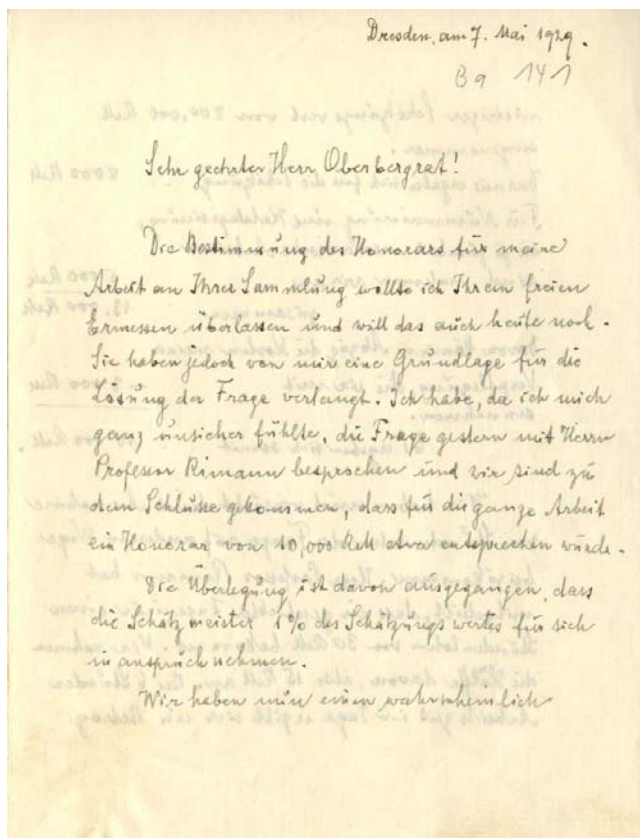 Dresden, am 7. Mai 1929.
Ba 141
Sehr geehrter Herr Oberbergrat!
Die Bestimmung des Honorars für meine
Arbeit an Ihrer Sammlung wollte ich Ihrem freien
Ermessen überlassen und will das auch heute noch.
Sie haben jedoch von mir eine Grundlage für die
Lösung der Frage verlangt. Ich habe, da ich mich
ganz unsicher fühlte, die Frage gestern mit Herrn
Professor Rimann besprochen und wir sind zu
dem Schlusse gekommen, dass für die ganze Arbeit
ein Honorar von 10,000 RM etwa entsprechen würde.
Die Überlegung ist davon ausgegangen, dass
die Schätzmeister 1% des Schätzungswertes für sich
in anspruch nehmen.
Wir haben nun einen wahrscheinlich